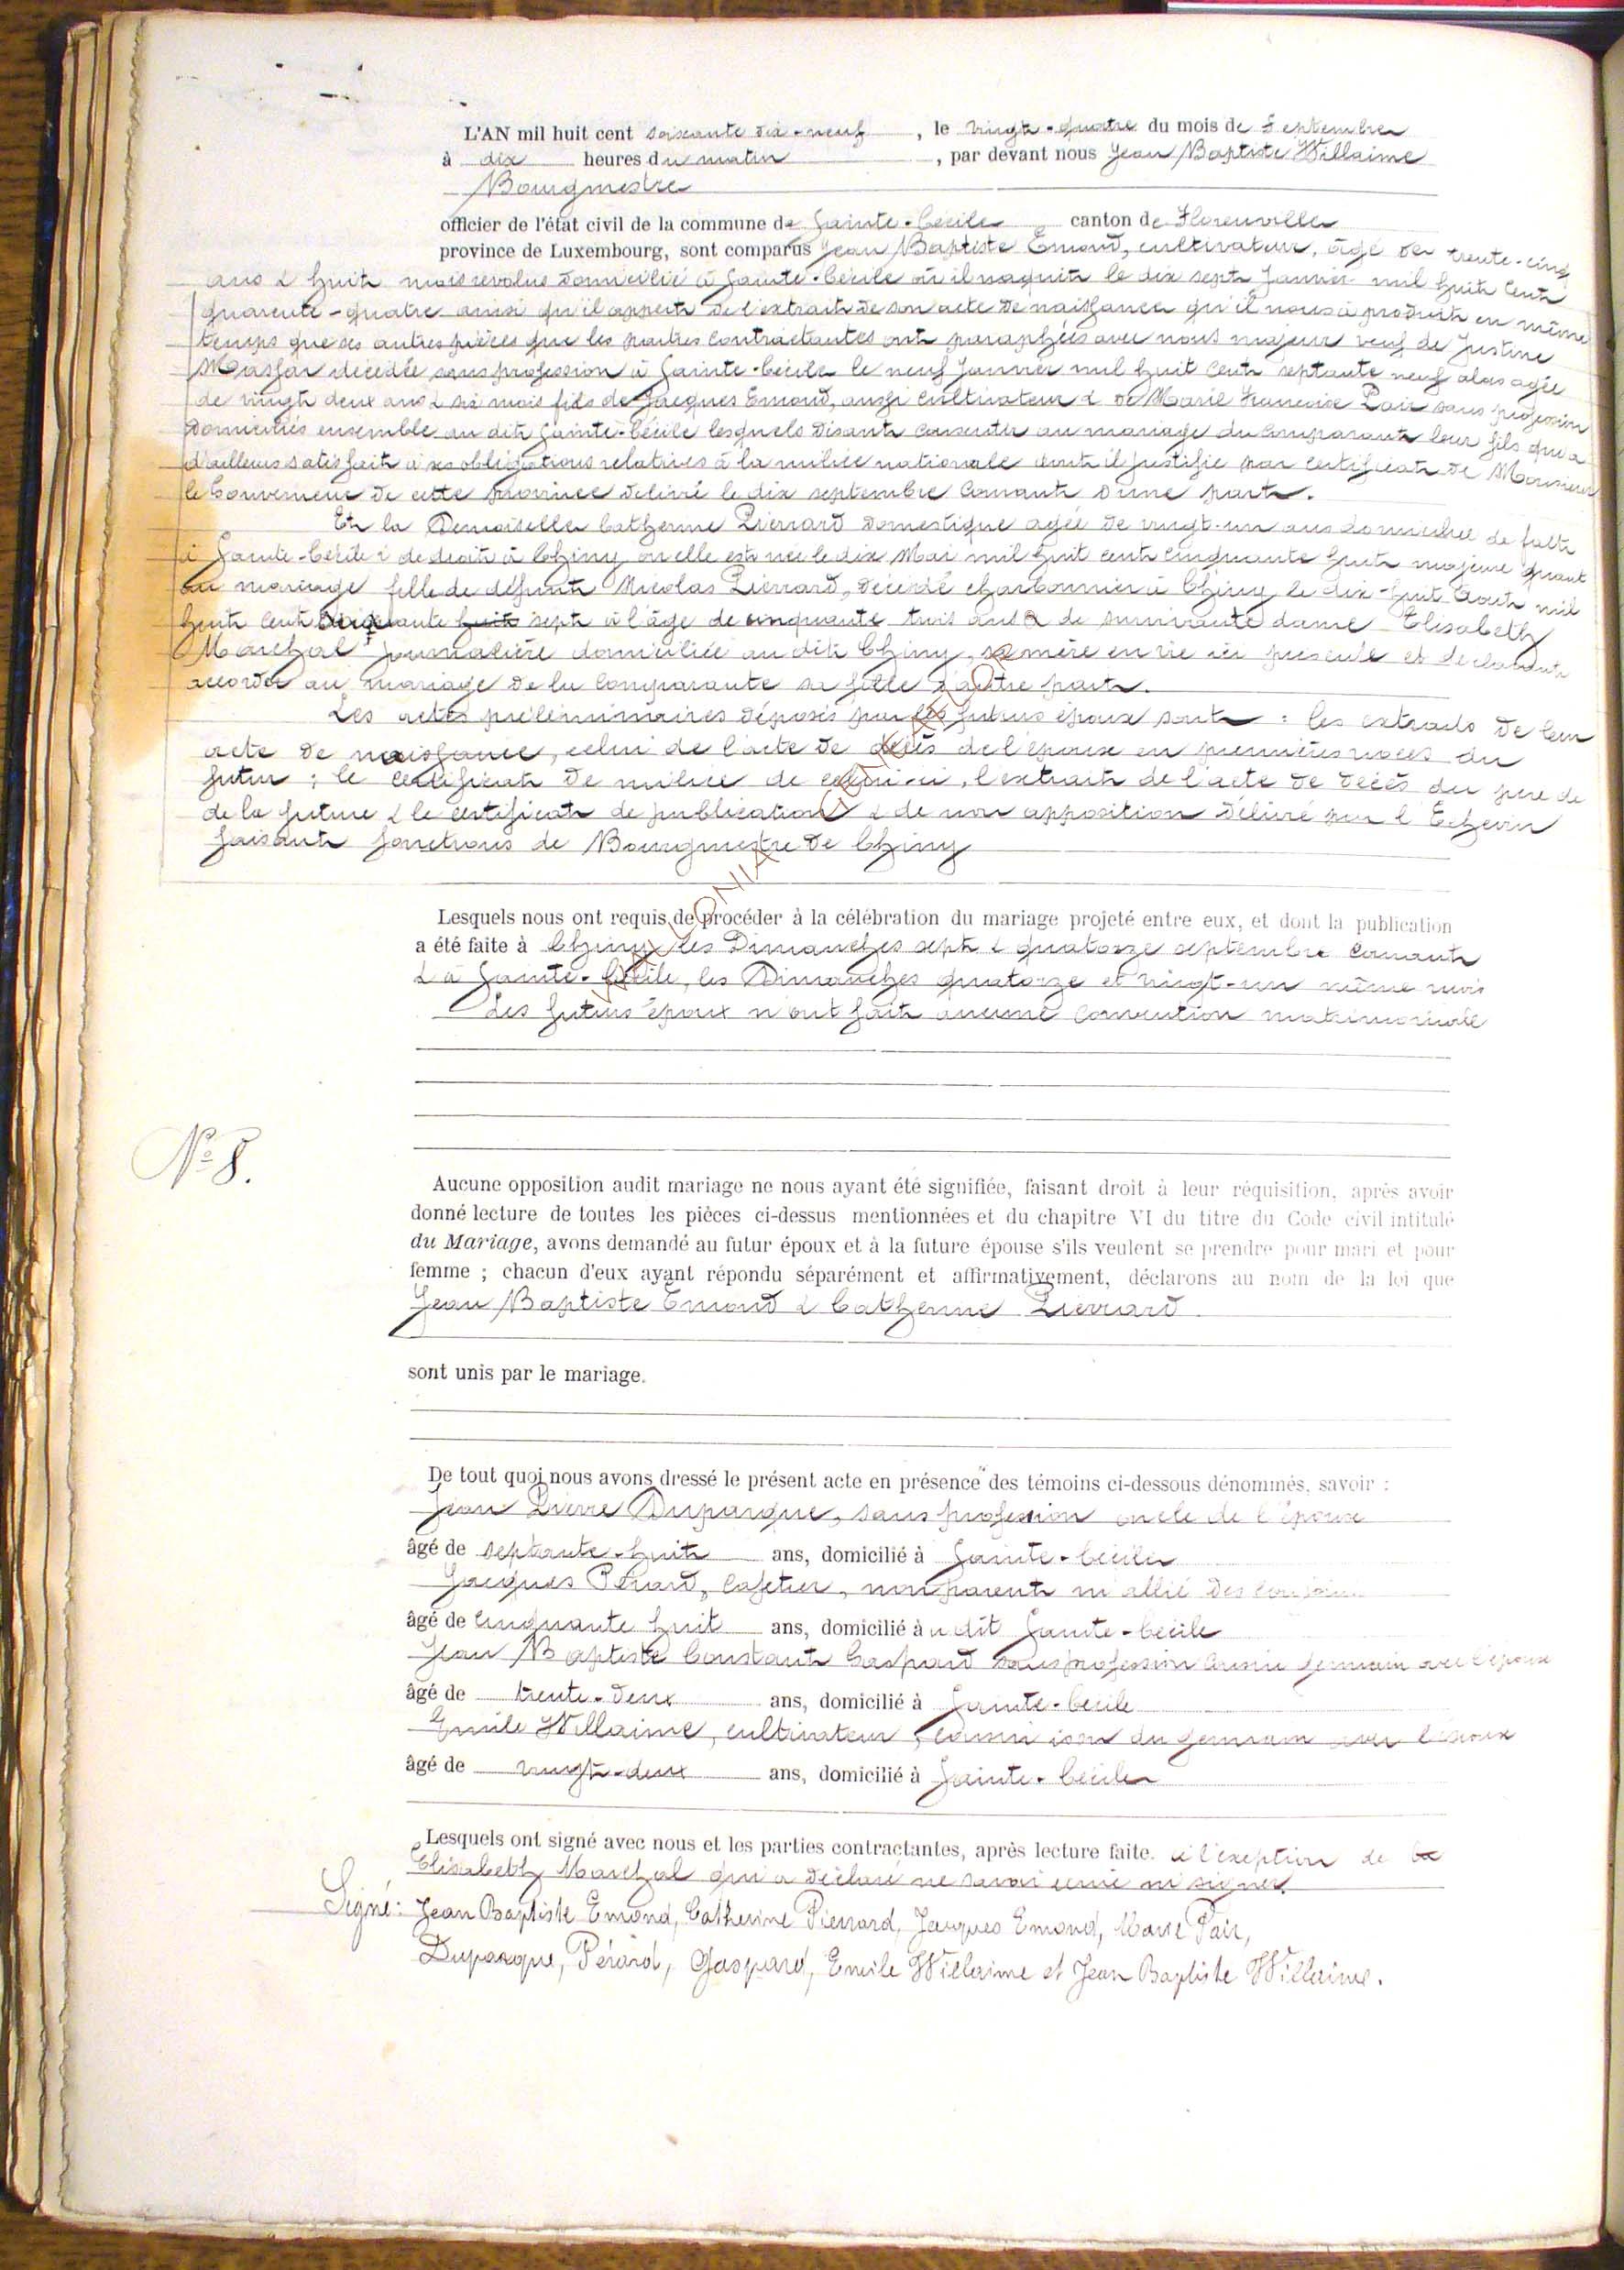 L'AN mil huit cent soixante dix-neuf, le vingt-quatre du mois de Septembre
à dix heures du matin, par devant nous Jean Baptiste Willaime
Bourgmestre
officier de l'état civil de la commune de Sainte-Cécile canton de Florenville
province de Luxembourg, sont comparus Jean Baptiste Emond, cultivateur, âgé de trente-cinq
ans & huit mois revolus domicilié à Sainte-Cécile où il naquit le dix sept Janvier mil huit cent
quarante-quatre ainsi qu'il appert de l'extrait de son acte de naissance qu'il nous a produit en même
temps que les autres pièces que les parties contractantes ont paraphées avec nous majeur veuf de Justine
décédée sans profession à Sainte-Cécile le neuf Janvier mil huit cent septante neuf alors agée
de vingt deux ans & six mois fils de Jacques Emond, aussi cultivateur & de Marie Françoise Pair sans profession
domiciliés ensemble au dit Sainte-Cécile lesquels disant consentir au mariage du comparant leur fils qui a
d'ailleurs satisfait à ses obligations relatives à la milice nationale dont il justifie par certificat de Monsieur
le Gouverneur de cette province délivré le dix septembre Courant d'une part.
Et la Demoiselle Catherine Pierrard domestique agée de vingt-un ans domiciliée de fait
à Sainte-Cécile & de droit à Chiny où elle est née le dix Mai mil huit cent cinquante huit majeure quant
au mariage fille de défunt Nicolas Pierrard, décédé charbonnier à Chiny le dix-huit Août mil
huit cent soixante huit sept à l'âge de cinquante trois ans & de survivante dame Elisabeth
Marchal journalière domiciliée au dit Chiny, sa mère en vie ici présente et déclarant
accorder au mariage de la Comparante sa fille d'autre part.
Les actes préliminaires déposés par les futurs époux sont : les extraits de leur
acte de naissance, celui de l'acte de décès de l'épouse en premières noces du
futur ; le certificat de milice de celui-ci, l'extrait de l'acte de décès du père de
de la future & le certificat de publication & de non opposition délivré par l'Echevin
faisant fonctions de Bourgmestre de Chiny
Lesquels nous ont requis de procéder à la célébration du mariage projeté entre eux, et dont la publication
a été faite à Chiny les Dimanches sept & quatorze septembre courant
& à Sainte-Cécile, les Dimanches quatorze et vingt-un même mois
Les futurs époux n'ont fait aucune convention matrimoniale
N° 8.
Aucune opposition audit mariage ne nous ayant été signifiée, faisant droit à leur réquisition, après avoir
donné lecture de toutes les pièces ci-dessus mentionnées et du chapitre VI du titre du Code civil intitulé
du Mariage, avons demandé au futur époux et à la future épouse s'ils veulent se prendre pour mari et pour
femme ; chacun d'eux ayant répondu séparément et affirmativement, déclarons au nom de la loi que
Jean Baptiste Emond & Catherine Pierrard
sont unis par le mariage.
De tout quoi nous avons dressé le présent acte en présence des témoins ci-dessous dénommés, savoir :
Jean Pierre Duparque, sans profession oncle de l'époux
âgé de septante-huit ans, domicilié à Sainte-Cécile
Jacques Pérard, cafetier, non parent ni allié des
âgé de cinquante huit ans, domicilié à u dit Sainte-Cécile
Jean Baptiste Constant Gaspard sans profession cousin germain avec l'époux
âgé de trente-deux ans, domicilié à Sainte-Cécile
Emile Willaime, cultivateur, cousin issu du germain avec l'époux
âgé de vingt-deux ans, domicilié à Sainte-Cécile
Lesquels ont signé avec nous et les parties contractantes, après lecture faite. à l'exeption de
Elisabeth Marchal qui a déclaré ne savoir écrire ni signer.
Signé : Jean Baptiste Emond, Catherine Pierrard, Jacques Emond, Marie Pair,
Duparque, Pérard, Gaspard, Emile Willaime et Jean Baptiste Willaime.